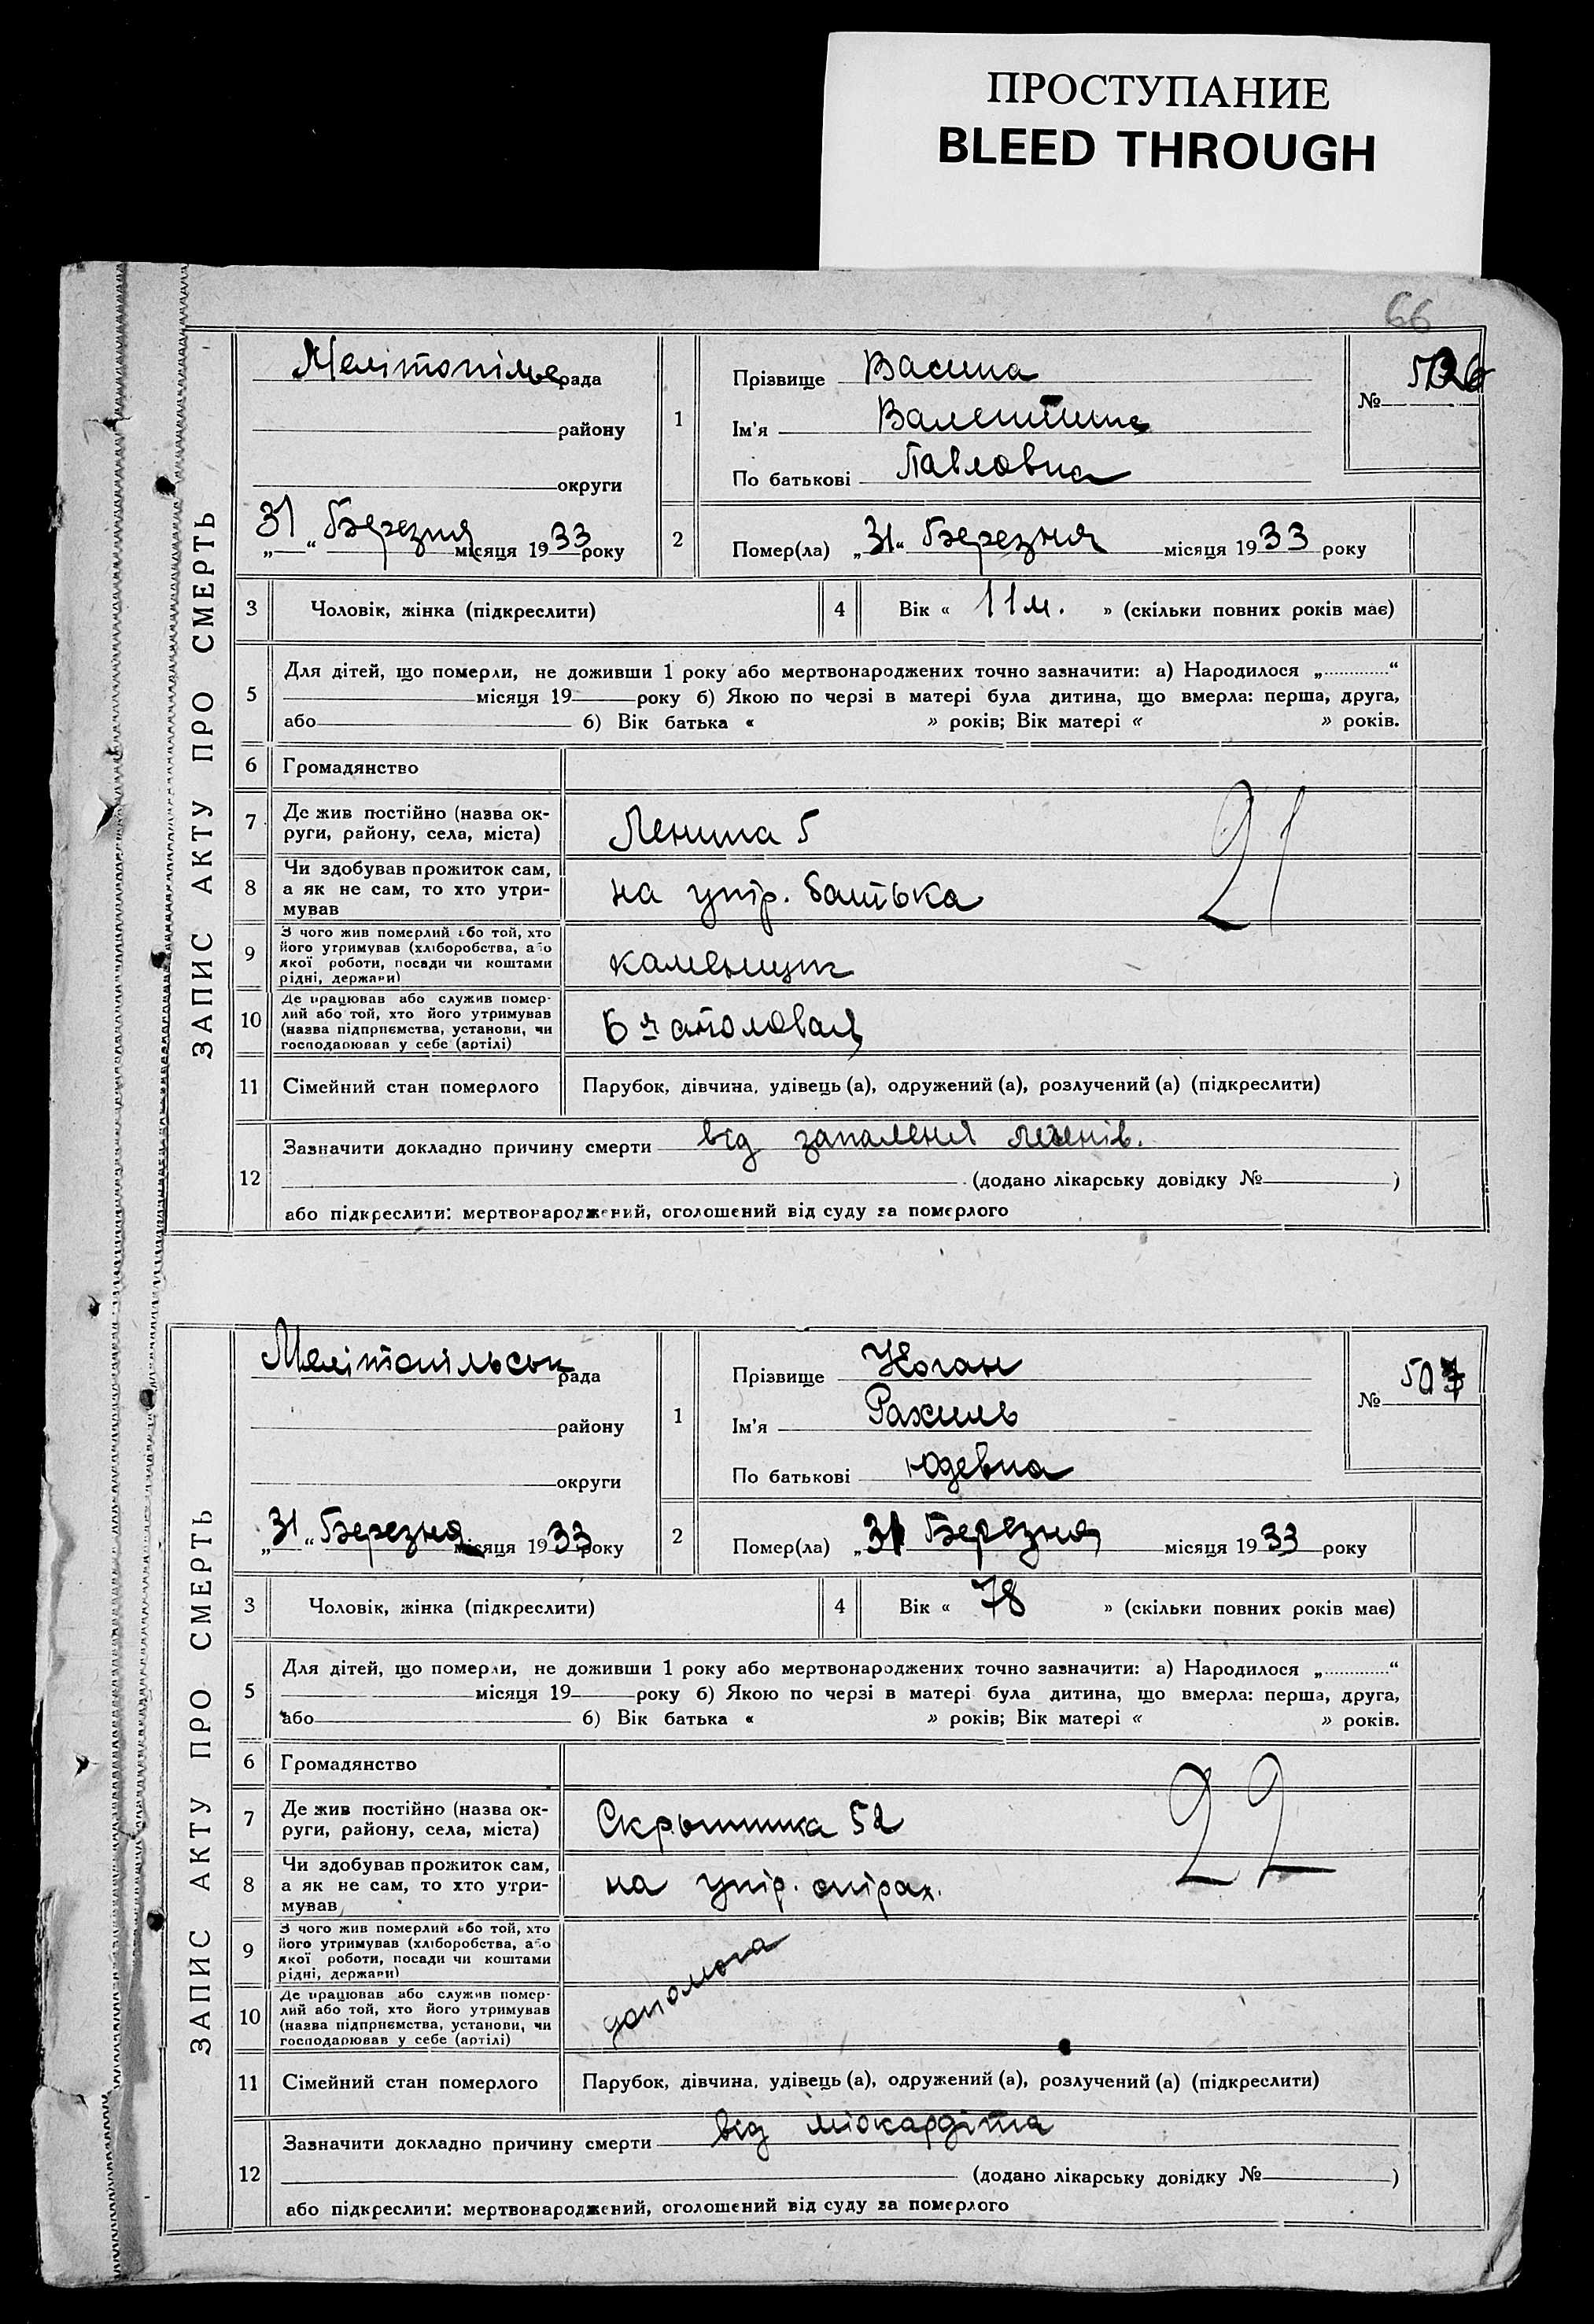 ПРОСТУПАНИЕ
BLEED THROUGH
66
ЗАПИС АКТУ ПРО СМЕРТЬ
Мелітопільс рада
району
округи
„31“ Березня місяця 1933 року
1
Прізвище Васина
Ім'я Валентина
По батькові Павловна
№
2
Помер(ла) „31“ Березня місяця 1933 року
3 Чоловік, жінка (підкреслити)
4 Вік « 11 м. » (скільки повних років має)
5
Для дітей, що померли, не доживши 1 року або мертвонароджених точно зазначити: а) Народилося „............“
місяця 19 року б) Якою по черзі в матері була дитина, що вмерла: перша, друга,
або б) Вік батька « » років; Вік матері « » років.
6 Громадянство
7 Де жив постійно (назва ок-
руги, району, села, міста)
Ленина 5
21
8 Чи здобував прожиток сам,
а як не сам, то хто утри-
мував
на утр. батька
9 З чого жив померлий або той, хто
його утримував (хліборобства, або
якої роботи, посади чи коштами
рідні, держави)
каменщик
10 Де працював або служив помер-
лий або той, хто його утримував
(назва підприємства, установи, чи
господарював у себе (артілі)
6 я столовая
11 Сімейний стан померлого Парубок, дівчина, удівець (а), одружений (а), розлучений (а) (підкреслити)
12
Зазначити докладно причину смерти від запаленя легенів.
(додано лікарську довідку № )
або підкреслити: мертвонароджений, оголошений від суду за померлого
ЗАПИС АКТУ ПРО СМЕРТЬ
Мелітопільськ рада
району
округи
„31“ Березня місяця 1933 року
1
Прізвище Коган
Ім'я Рахиль
По батькові Юдевна
№ 507
2
Помер(ла) „31 Березня місяця 1933 року
3 Чоловік, жінка (підкреслити)
4 Вік « 78 » (скільки повних років має)
5
Для дітей, що померли, не доживши 1 року або мертвонароджених точно зазначити: а) Народилося „............“
місяця 19 року б) Якою по черзі в матері була дитина, що вмерла: перша, друга,
або б) Вік батька « » років; Вік матері « » років.
6 Громадянство
7 Де жив постійно (назва ок-
руги, району, села, міста)
Скрыпника 52
22
8 Чи здобував прожиток сам,
а як не сам, то хто утри-
мував
на утр. страх.
9 З чого жив померлий або той, хто
його утримував (хліборобства, або
якої роботи, посади чи коштами
рідні, держави)
допомога
10 Де працював або служив помер-
лий або той, хто його утримував
(назва підприємства, установи, чи
господарював у себе (артілі)
11 Сімейний стан померлого Парубок, дівчина, удівець (а), одружений (а), розлучений (а) (підкреслити)
12
Зазначити докладно причину смерти від міокардіта
(додано лікарську довідку № )
або підкреслити: мертвонароджений, оголошений від суду за померлого